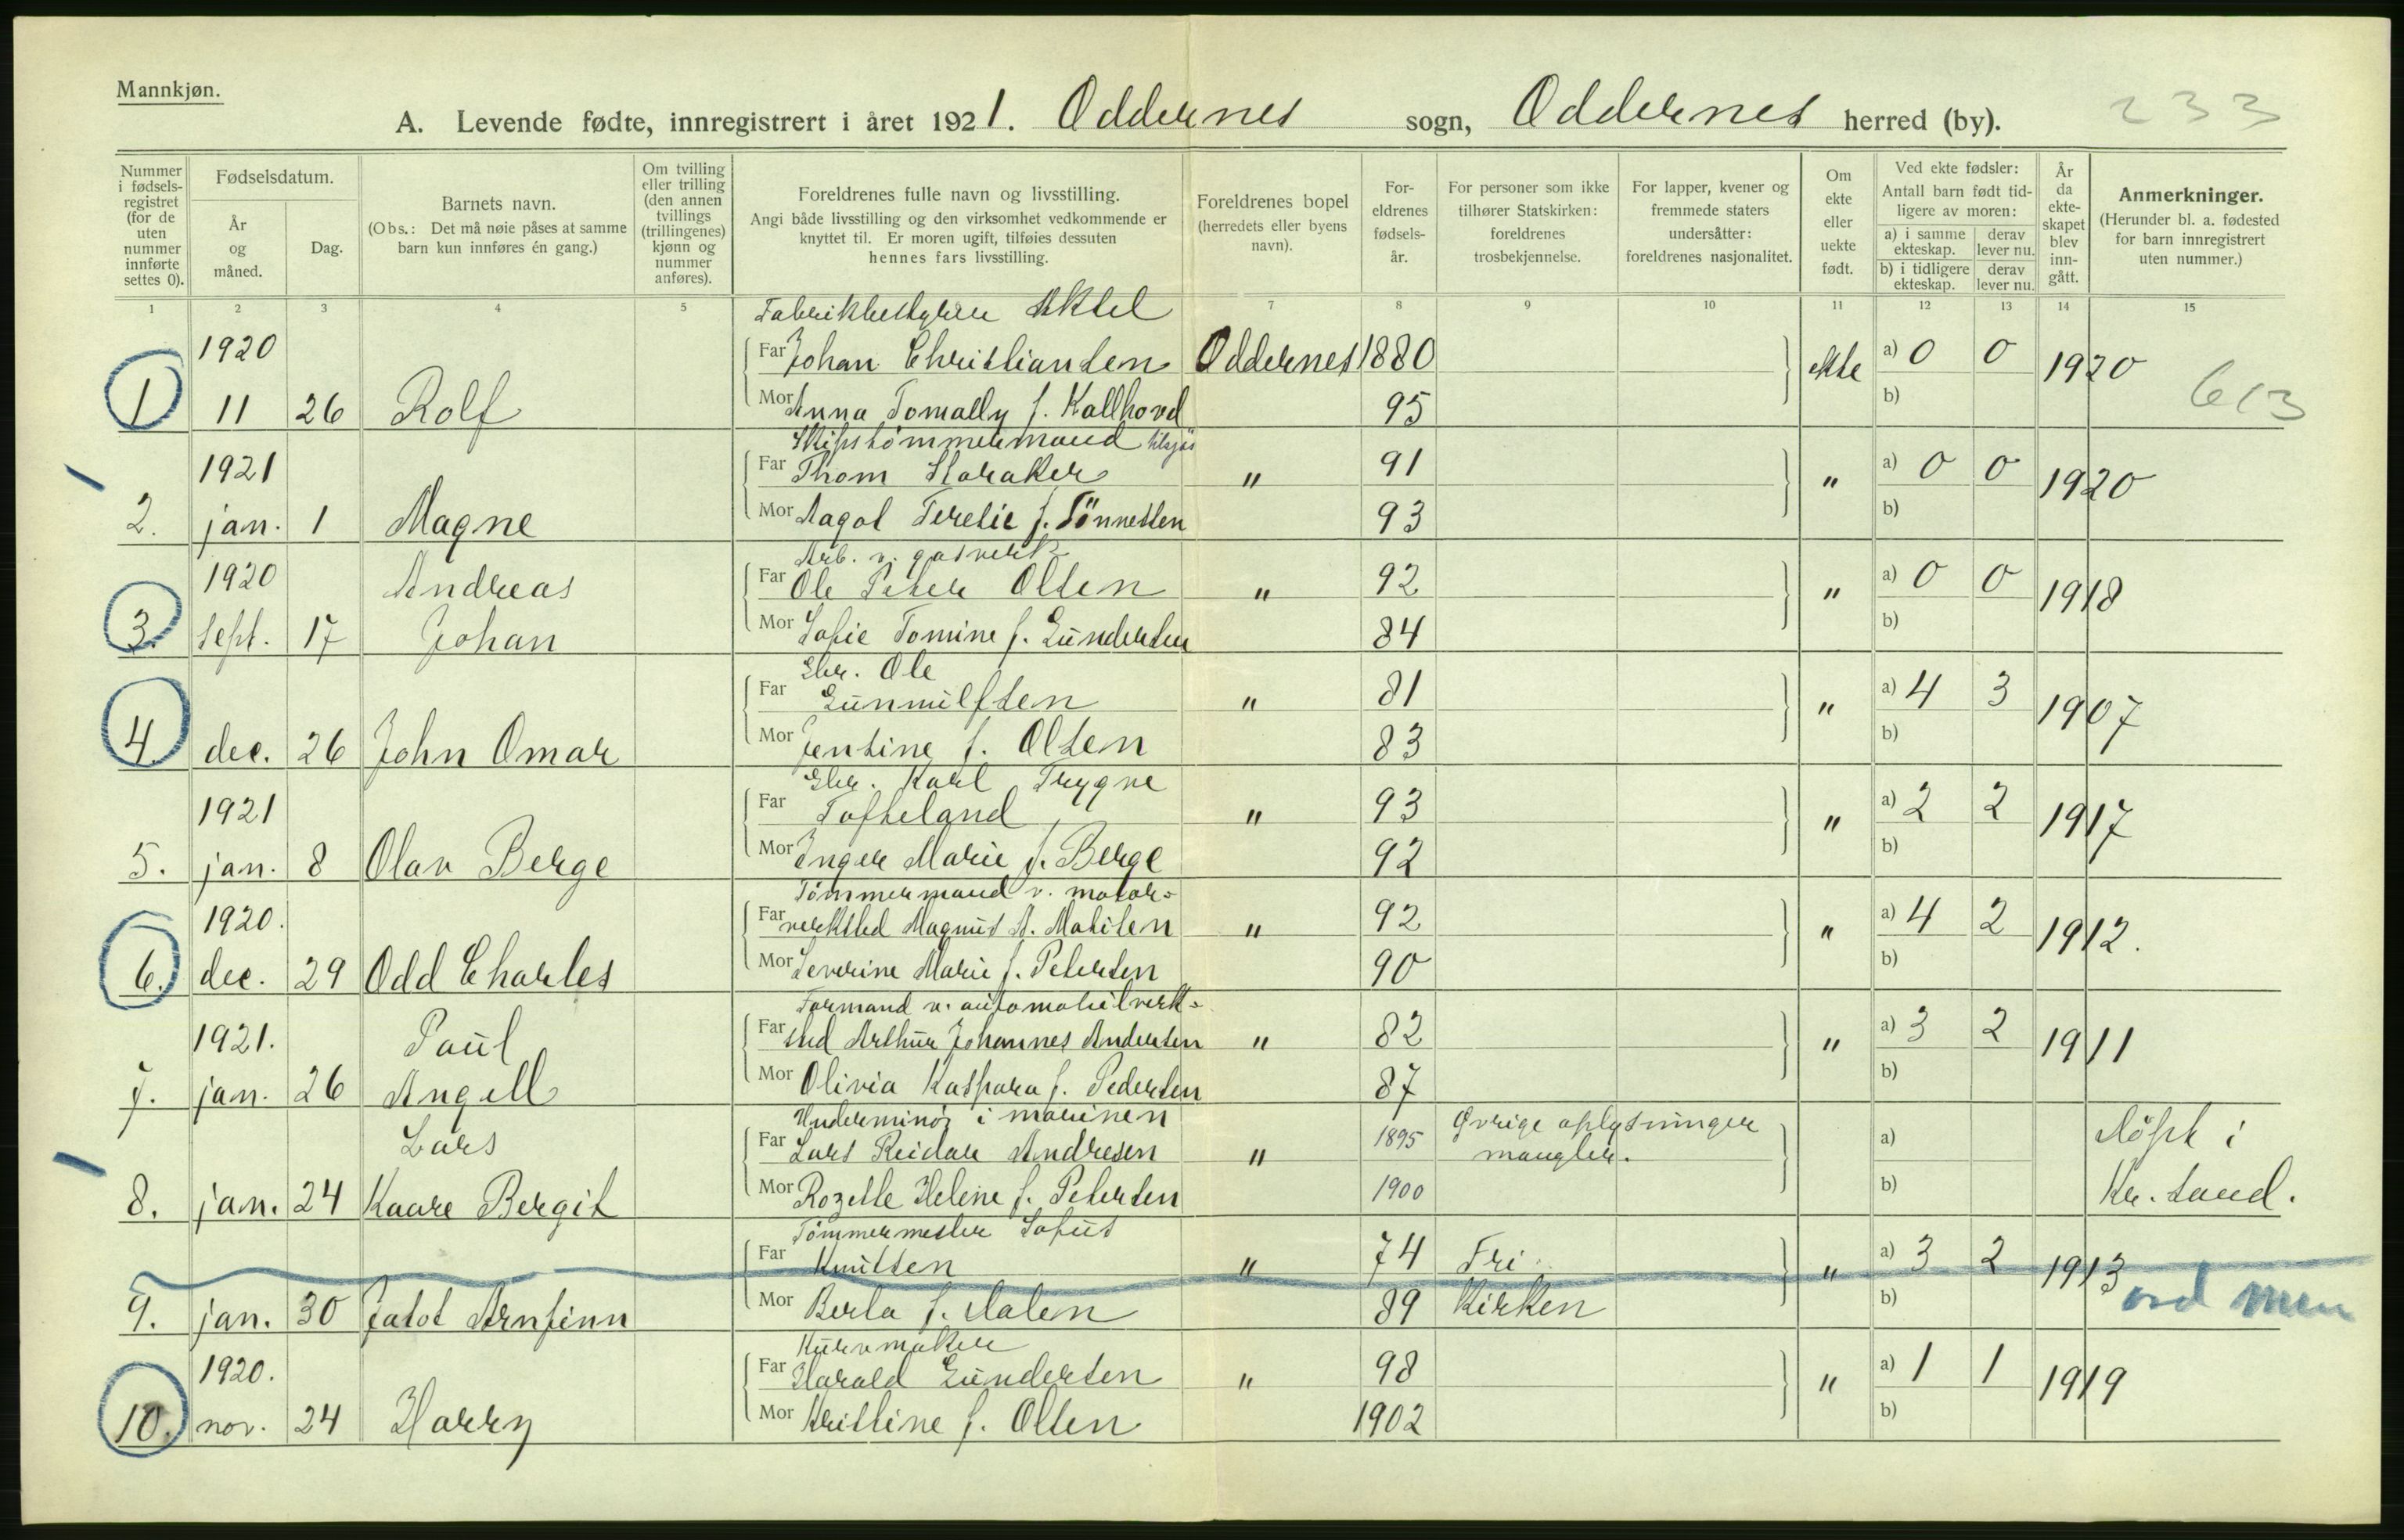 Mannkjøn.
A. Levende fødte, innregistrert i året 1921. Oddernes sogn, Oddernes herred (by). 233
Nummer i fødsels-registret (for de uten nummer innførte settes 0).
Fødselsdatum.
År og måned.
Dag.
Barnets navn.
(Obs.: Det må nøie påses at samme barn kun innføres én gang.)
Om tvilling eller trilling (den annen tvillings (trillingenes) kjønn og nummer anføres).
Foreldrenes fulle navn og livsstilling.
Angi både livsstilling og den virksomhet vedkommende er knyttet til. Er moren ugift, tilføies dessuten hennes fars livsstilling.
Foreldrenes bopel (herredets eller byens navn).
For-eldrenes fødsels-år.
For personer som ikke tilhører Statskirken: foreldrenes trosbekjennelse.
For lapper, kvener og fremmede staters undersåtter: foreldrenes nasjonalitet.
Om ekte eller uekte født.
Ved ekte fødsler:
Antall barn født tid-ligere av moren:
a) i samme ekteskap. derav lever nu.
b) i tidligere ekteskap. derav lever nu.
År da ekte-skapet blev inn-gått.
Anmerkninger.
(Herunder bl. a. fødested for barn innregistrert uten nummer.)
1 2 3 4 5 7 8 9 10 11 12 13 14 15
Fabrikkbestyrer Aksel
1920 Far Johan Christiansen Oddernes 1880 ekte a) 0 0 1920
1 11 26 Rolf Mor Anna Tomally f. Kallhovd 95 b) 613
Skipstømmermand tilsjøs
1921 Far Thom Haraker " 91 " a) 0 0 1920
2. jan. 1 Magne Mor Aagot Teresie f. Tönnessen 93 b)
Arb. v. gasverk
1920 Andreas Far Ole Peter Olsen " 92 " a) 0 0 1918
3. sept. 17 Johan Mor Sofie Tomine f. Gundersen 84 b)
Gbr. Ole
Far Gunnulfsen " 81 " a) 4 3 1907
4. dec. 26 John Omar Mor Jensine f. Olsen 83 b)
Gbr. Karl Trygve
1921 Far Tofteland " 93 " a) 2 2 1917
5. jan. 8 Olav Berge Mor Inger Marie f. Berge 92 b)
Tømmermand v. motor=
1920. Far verksted Magnus A. Matisen " 92 " a) 4 2 1912.
6. dec. 29 Odd Charles Mor Severine Marie f. Petersen 90 b)
Formand v. automobilverk=
1921. Paul Far sted Arthur Johannes Andersen " 82 " a) 3 2 1911
7. jan. 26 Angell Mor Olivia Kaspara f. Pedersen 87 b)
Underminør i marinen
Lars Far Lars Reidar Andresen " 1895 Øvrige oplysninger mangler. a) Døpt i
8. jan. 24 Kaare Bergit Mor Rozette Helene f. Petersen 1900 b) Kr.sand.
Tømmermester Sofus
Far Knutsen " 74 Fri " a) 3 2 1913
9. jan. 30 Jatot Arnfinn Mor Berta f. Dalen 89 Kirken b)
Kurvmaker
1920. Far Harald Gundersen " 98 " a) 1 1 1919
10. nov. 24 Harry Mor Kristine f. Olsen 1902 b)